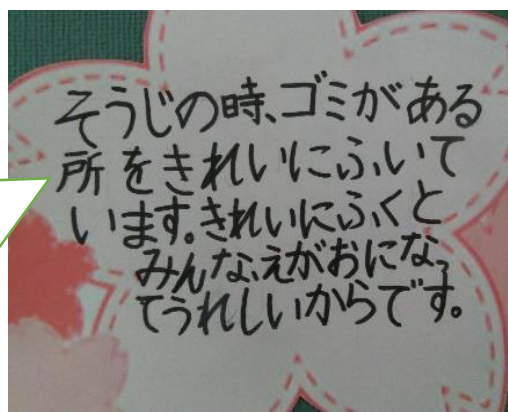 そうじの時、ゴミがある
所をきれいにふいて
います。きれいにふくと
みんな、えがおになっ
てうれしいからです。